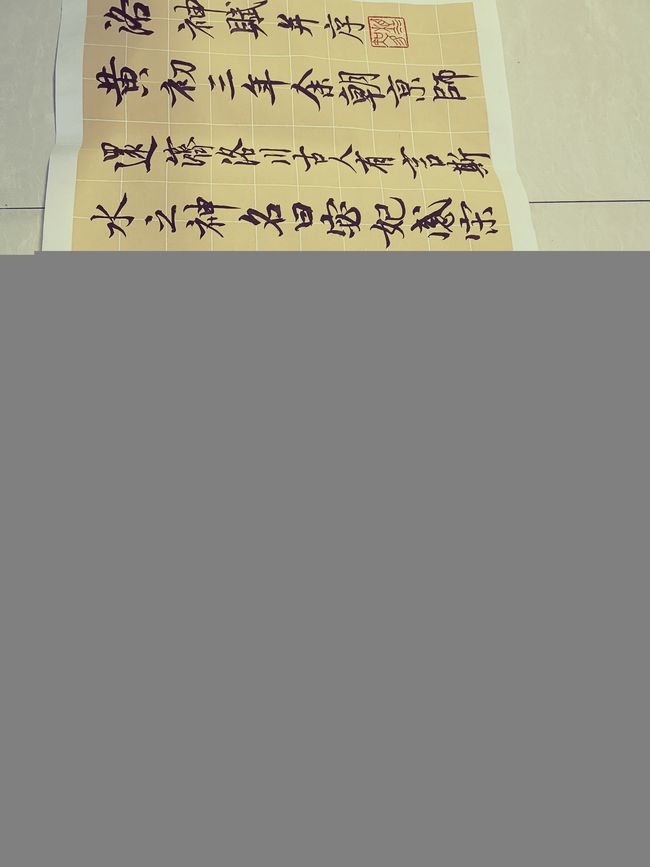 洛神賦并序
黄初三年余朝京師
還濟洛川古人有言斯
水之神名曰宓妃感宋